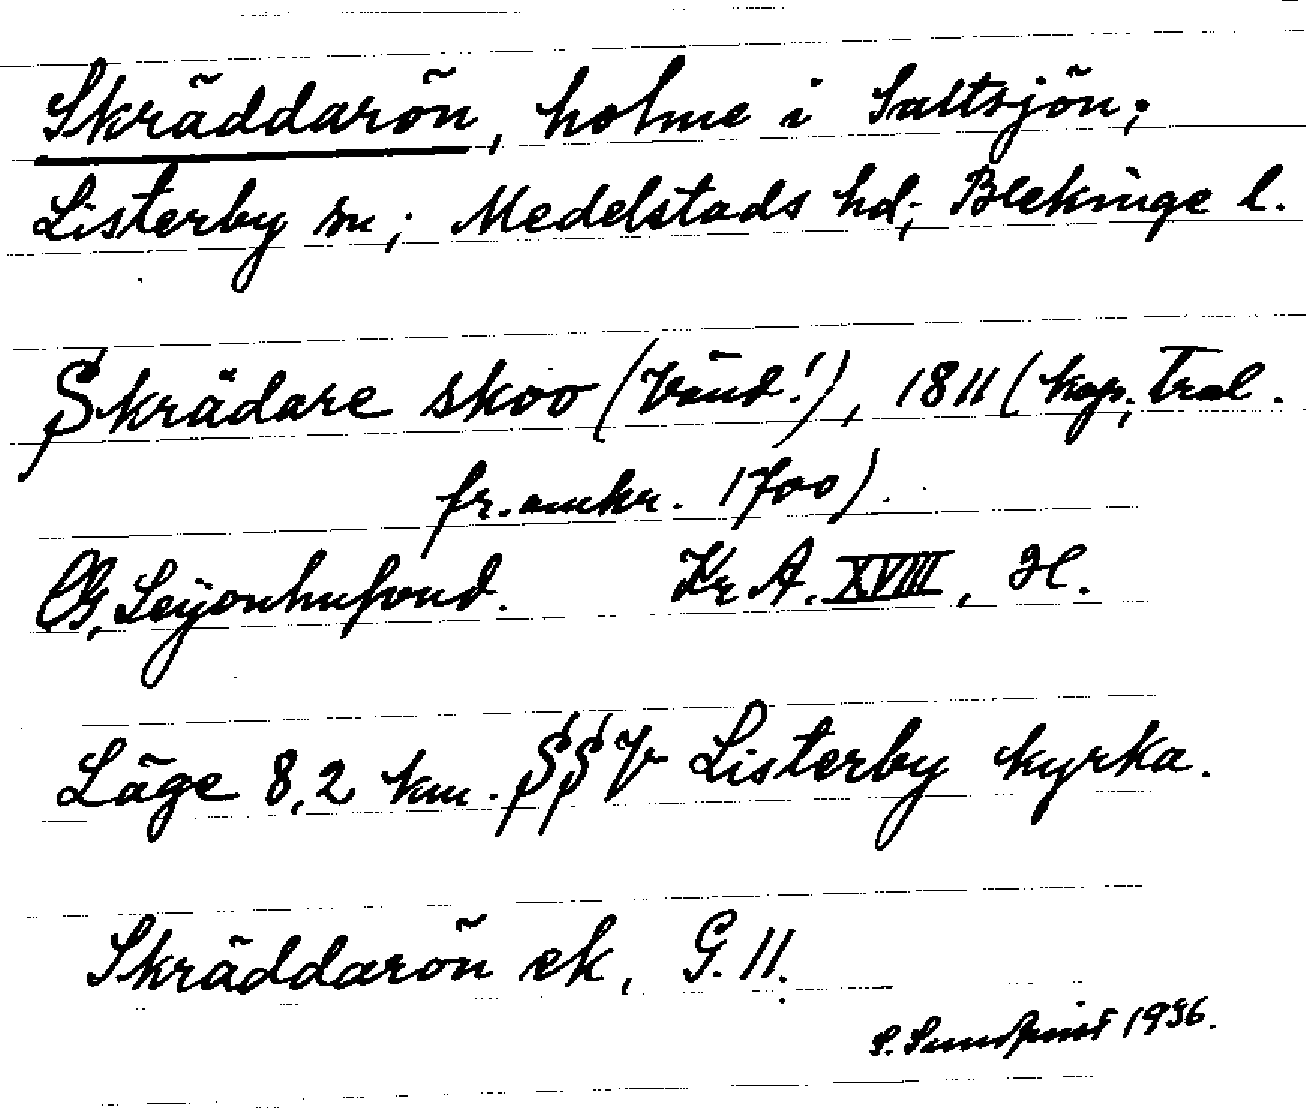 Skräddarön, holme i Saltsjön;
Listerby sn; Medelstads hd; Blekinge l.
Skrädare skoo (Vänd!), 1811 (kop; tral.
fr. omkr. 1700).
G. Leijonhufvud. Kr A. XVIII, H.
Läge 8,2 km. SSV Listerby kyrka.
Skräddarön ek, G. 11.
S. Sundqvist 1936.